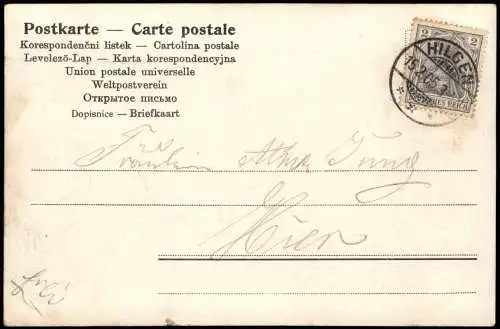 Postkarte — Carte postale
Korespondenční listek — Cartolina postale
Levelező-Lap — Karta korespondencyjna
Union postale universelle
Weltpostverein
Открытое письмо
Dopisnice — Briefkaart
2 2
HILGEN
DEUTSCHES REICH
Fräulein Alma Jung
Hier